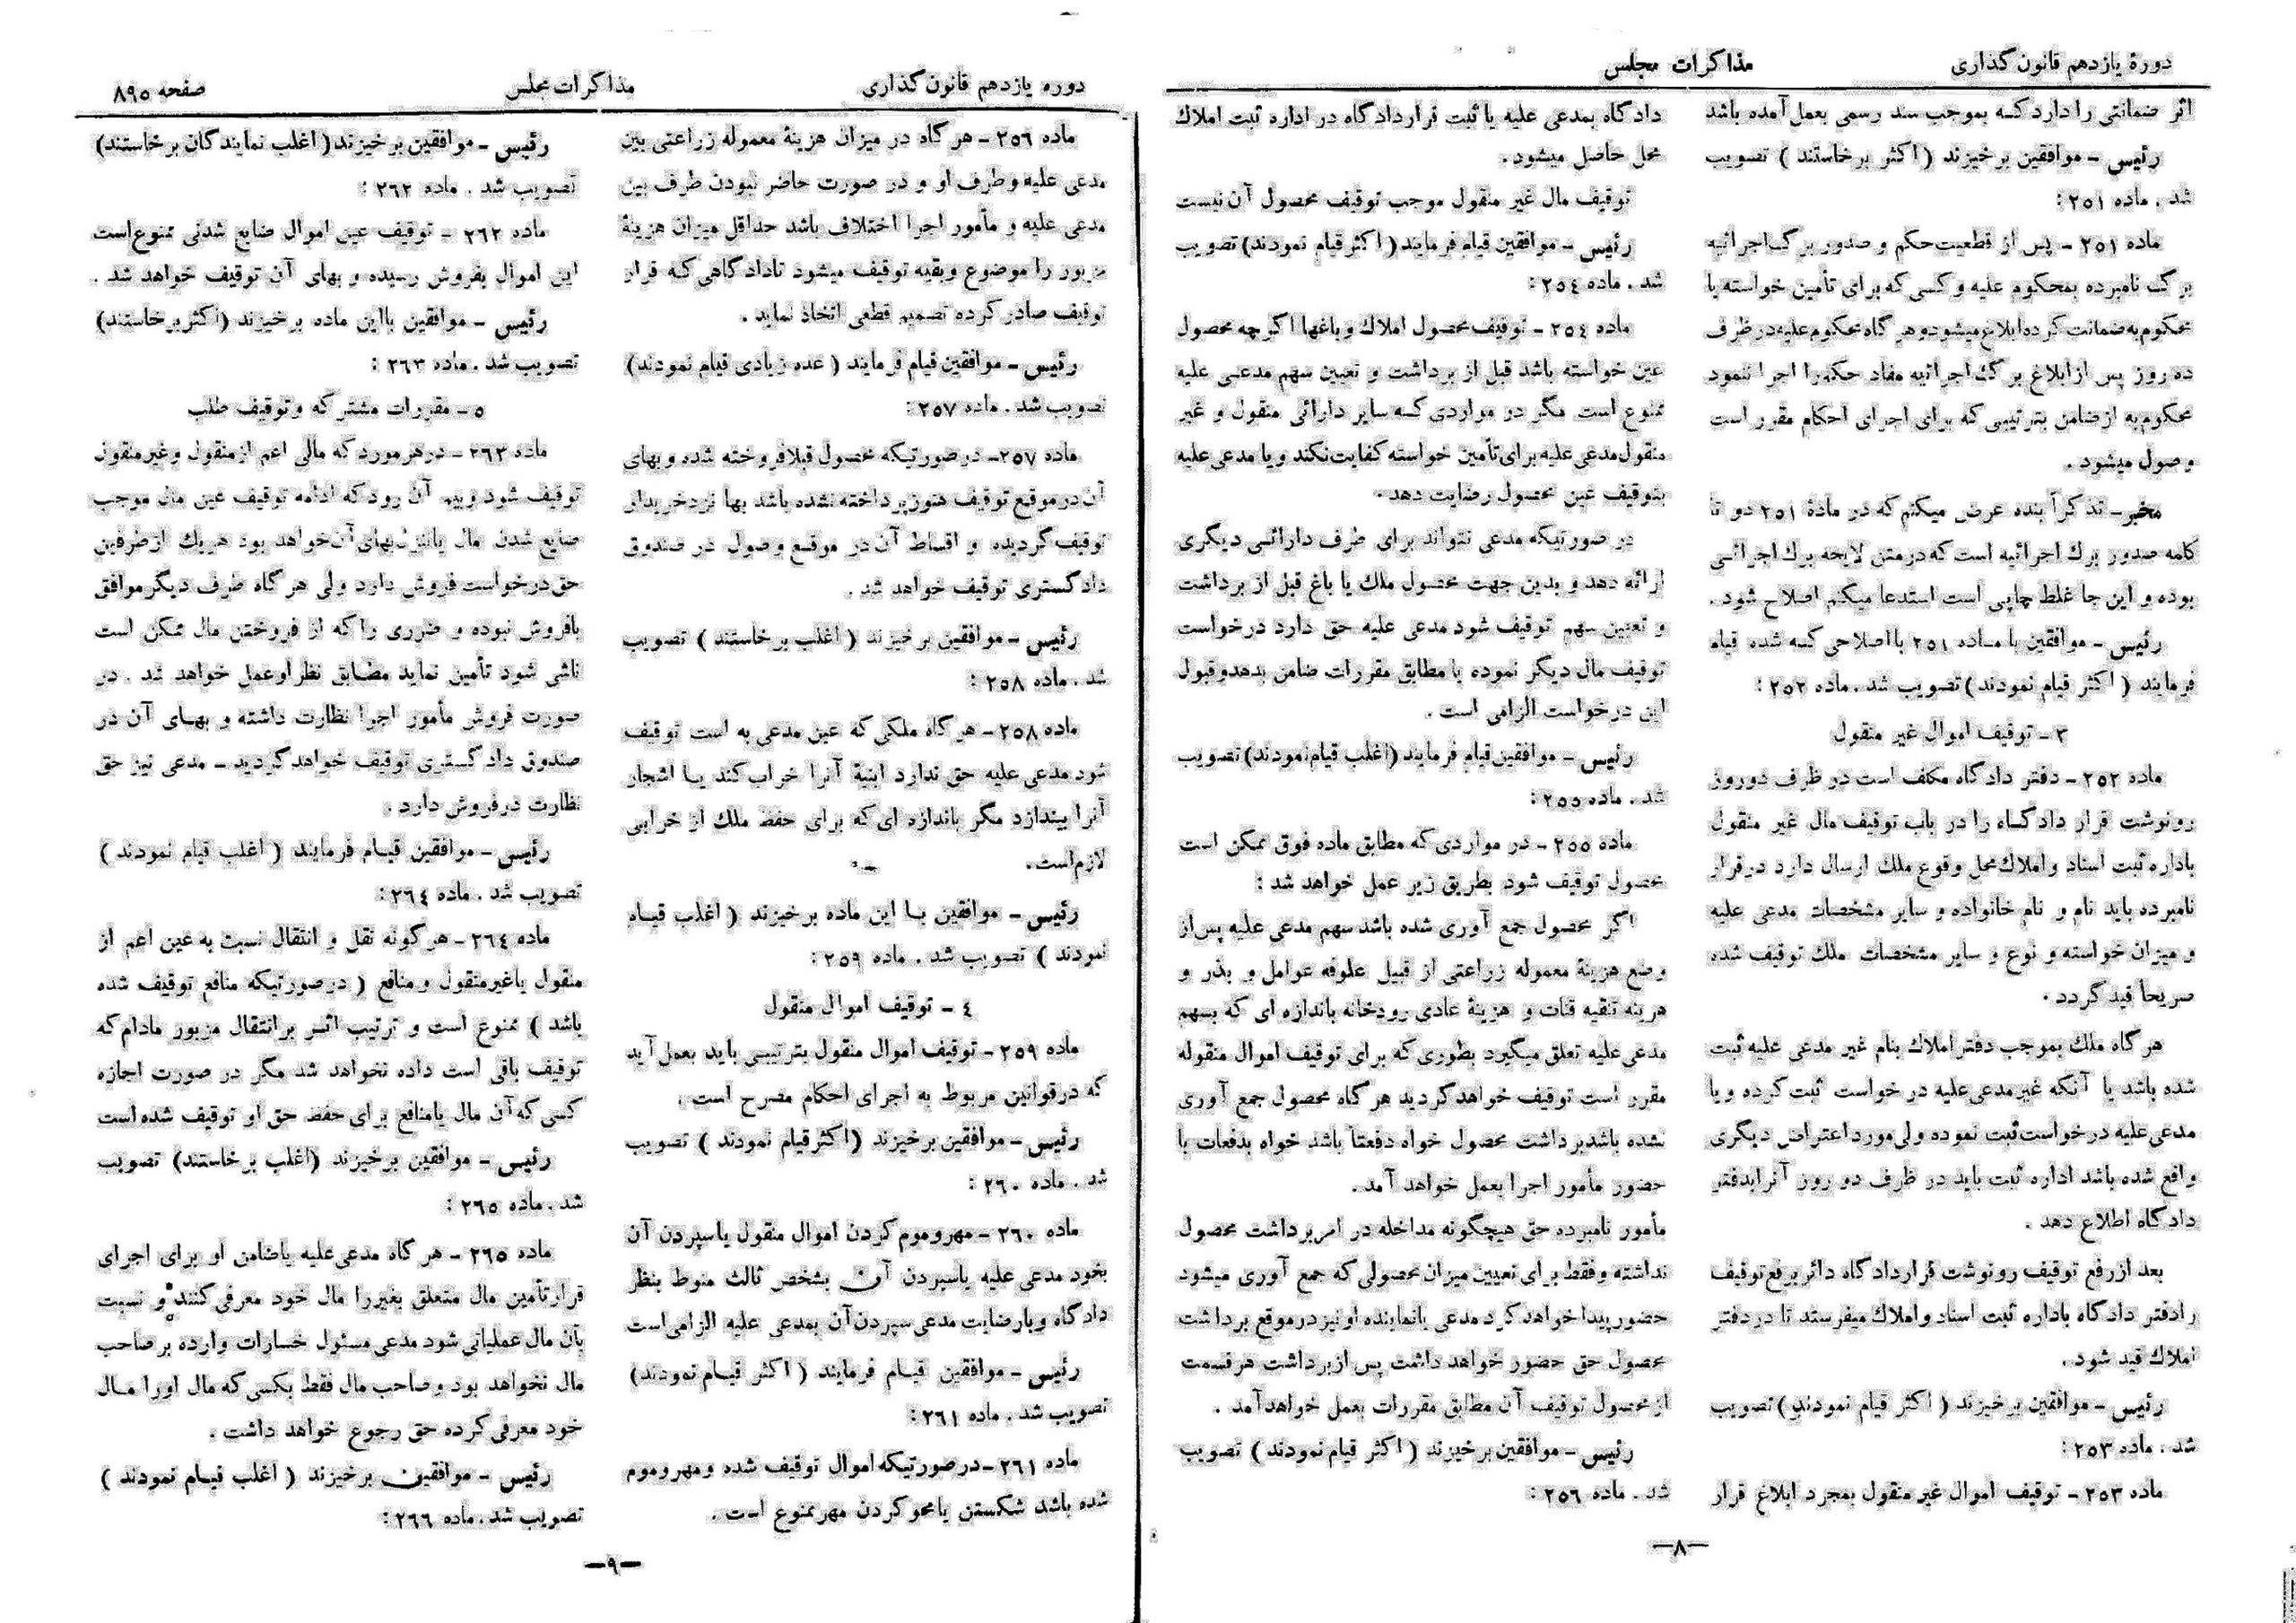 دورهٔ یازدهم قانون گذاری
مذاکرات مجلس
اثر ضمانتی را دارد که بموجب سند رسمی بعمل آمده باشد
رئیس – موافقین برخیزند ( اکثر برخاستند ) تصویب
شد . ماده ۲۵۱ :
ماده ۲۵۱ – پس از قطعیت حکم و صدور برگ اجرائیه
برگ نامبرده بمحکوم علیه و کسی که برای تأمین خواسته یا
محکوم به ضمانت کرده ابلاغ میشود و هر گاه محکوم علیه در ظرف
ده روز پس از ابلاغ برگ اجرائیه مفاد حکم را اجرا ننمود
محکوم به از ضامن بترتیبی که برای اجرای احکام مقرر است
وصول میشود .
مخبر – تذکراً بنده عرض میکنم که در مادهٔ ۲۵۱ دو تا
کلمه صدور برگ اجرائیه است که در متن لایحه برگ اجرائی
بوده و این جا غلط چاپی است استدعا میکنم اصلاح شود .
رئیس – موافقین با ماده ۲۵۱ با اصلاحی که شده قیام
فرمایند ( اکثر قیام نمودند ) تصویب شد . ماده ۲۵۲ :
۳ – توقیف اموال غیر منقول
ماده ۲۵۲ – دفتر دادگاه مکلف است در ظرف دو روز
رونوشت قرار دادگاه را در باب توقیف مال غیر منقول
باداره ثبت اسناد و املاک محل وقوع ملک ارسال دارد در قرار
نامبرده باید نام و نام خانواده و سایر مشخصات مدعی علیه
و میزان خواسته و نوع و سایر مشخصات ملک توقیف شده
صریحاً قید گردد .
هر گاه ملک بموجب دفتر املاک بنام غیر مدعی علیه ثبت
شده باشد یا آنکه غیر مدعی علیه درخواست ثبت کرده و یا
مدعی علیه درخواست ثبت نموده ولی مورد اعتراض دیگری
واقع شده باشد اداره ثبت باید در ظرف دو روز آنرا بدفتر
دادگاه اطلاع دهد .
بعد از رفع توقیف رونوشت قرار دادگاه دائر برفع توقیف
را دفتر دادگاه باداره ثبت اسناد و املاک میفرستد تا در دفتر
املاک قید شود .
رئیس – موافقین برخیزند ( اکثر قیام نمودند ) تصویب
شد . ماده ۲۵۳ :
ماده ۲۵۳ – توقیف اموال غیر منقول بمجرد ابلاغ قرار
دادگاه بمدعی علیه یا ثبت قرار دادگاه در اداره ثبت املاک
محل حاصل میشود .
توقیف مال غیر منقول موجب توقیف محصول آن نیست
رئیس – موافقین قیام فرمایند ( اکثر قیام نمودند ) تصویب
شد . ماده ۲۵۴ :
ماده ۲۵۴ – توقیف محصول املاک و باغها اگرچه محصول
عین خواسته باشد قبل از برداشت و تعیین سهم مدعی علیه
ممنوع است مگر در مواردی که سایر دارائی منقول و غیر
منقول مدعی علیه برای تأمین خواسته کفایت نکند و یا مدعی علیه
بتوقیف عین محصول رضایت دهد .
در صورتیکه مدعی نتواند برای طرف دارائی دیگری
ارائه دهد و بدین جهت محصول ملک یا باغ قبل از برداشت
و تعیین سهم توقیف شود مدعی علیه حق دارد درخواست
توقیف مال دیگر نموده یا مطابق مقررات ضامن بدهد و قبول
این درخواست الزامی است .
رئیس – موافقین قیام فرمایند ( اغلب قیام نمودند ) تصویب
شد . ماده ۲۵۵ :
ماده ۲۵۵ – در مواردی که مطابق ماده فوق ممکن است
محصول توقیف شود بطریق زیر عمل خواهد شد :
اگر محصول جمع آوری شده باشد سهم مدعی علیه پس از
وضع هزینهٔ معموله زراعتی از قبیل علوفه عوامل و بذر و
هزینه تنقیه قنات و هزینهٔ عادی رودخانه باندازه ای که بسهم
مدعی علیه تعلق میگیرد بطوری که برای توقیف اموال منقوله
مقرر است توقیف خواهد گردید هر گاه محصول جمع آوری
نشده باشد برداشت محصول خواه دفعتاً باشد خواه بدفعات با
حضور مأمور اجرا بعمل خواهد آمد .
مأمور نامبرده حق هیچگونه مداخله در امر برداشت محصول
نداشته و فقط برای تعیین میزان محصولی که جمع آوری میشود
حضور پیدا خواهد کرد مدعی یا نماینده او نیز در موقع برداشت
محصول حق حضور خواهد داشت پس از برداشت هر قسمت
از محصول توقیف آن مطابق مقررات بعمل خواهد آمد .
رئیس – موافقین برخیزند ( اکثر قیام نمودند ) تصویب
شد . ماده ۲۵۶ :
–۸–
دوره یازدهم قانون گذاری
مذاکرات مجلس
صفحه ۸۹۵
ماده ۲۵۶ – هر گاه در میزان هزینهٔ معموله زراعتی بین
مدعی علیه و طرف او و در صورت حاضر نبودن طرف بین
مدعی علیه و مأمور اجرا اختلاف باشد حداقل میزان هزینهٔ
مزبور را موضوع و بقیه توقیف میشود تا دادگاهی که قرار
توقیف صادر کرده تصمیم قطعی اتخاذ نماید .
رئیس – موافقین قیام فرمایند ( عده زیادی قیام نمودند )
تصویب شد . ماده ۲۵۷ :
ماده ۲۵۷ – در صورتیکه محصول قبلا فروخته شده و بهای
آن در موقع توقیف هنوز پرداخته نشده باشد بها نزد خریدار
توقیف گردیده و اقساط آن در موقع وصول در صندوق
دادگستری توقیف خواهد شد .
رئیس – موافقین برخیزند ( اغلب برخاستند ) تصویب
شد . ماده ۲۵۸ :
ماده ۲۵۸ – هر گاه ملکی که عین مدعی به است توقیف
شود مدعی علیه حق ندارد ابنیهٔ آنرا خراب کند یا اشجار
آنرا بیندازد مگر باندازه ای که برای حفظ ملک از خرابی
لازم است .
رئیس – موافقین با این ماده برخیزند ( اغلب قیام
نمودند ) تصویب شد . ماده ۲۵۹ :
٤ – توقیف اموال منقول
ماده ۲۵۹ – توقیف اموال منقول بترتیبی باید بعمل آید
که در قوانین مربوط به اجرای احکام مصرح است .
رئیس – موافقین برخیزند ( اکثر قیام نمودند ) تصویب
شد . ماده ۲۶۰ :
ماده ۲۶۰ – مهر و موم کردن اموال منقول یا سپردن آن
بخود مدعی علیه یا سپردن آن بشخص ثالث منوط بنظر
دادگاه و با رضایت مدعی سپردن آن بمدعی علیه الزامی است
رئیس – موافقین قیام فرمایند ( اکثر قیام نمودند )
تصویب شد . ماده ۲۶۱ :
ماده ۲۶۱ – در صورتیکه اموال توقیف شده و مهر و موم
شده باشد شکستن یا محو کردن مهر ممنوع است .
رئیس – موافقین برخیزند ( اغلب نمایندگان برخاستند )
تصویب شد . ماده ۲۶۲ :
ماده ۲۶۲ – توقیف عین اموال ضایع شدنی ممنوع است
این اموال بفروش رسیده و بهای آن توقیف خواهد شد .
رئیس – موافقین با این ماده برخیزند ( اکثر برخاستند )
تصویب شد . ماده ۲۶۳ :
۵ – مقررات مشترکه و توقیف طلب
ماده ۲۶۳ – در هر مورد که مالی اعم از منقول و غیر منقول
توقیف شود و بیم آن رود که ادامه توقیف عین مال موجب
ضایع شدن مال یا تنزل بهای آن خواهد بود هر یک از طرفین
حق درخواست فروش دارد ولی هر گاه طرف دیگر موافق
بافروش نبوده و ضرری را که از فروختن مال ممکن است
ناشی شود تأمین نماید مطابق نظر او عمل خواهد شد . در
صورت فروش مأمور اجرا نظارت داشته و بهای آن در
صندوق دادگستری توقیف خواهد گردید – مدعی نیز حق
نظارت در فروش دارد .
رئیس – موافقین قیام فرمایند ( اغلب قیام نمودند )
تصویب شد . ماده ۲۶٤ :
ماده ۲۶٤ – هر گونه نقل و انتقال نسبت به عین اعم از
منقول یا غیر منقول و منافع ( در صورتیکه منافع توقیف شده
باشد ) ممنوع است و ترتیب اثر بر انتقال مزبور مادام که
توقیف باقی است داده نخواهد شد مگر در صورت اجازه
کسی که آن مال یا منافع برای حفظ حق او توقیف شده است
رئیس – موافقین برخیزند ( اغلب برخاستند ) تصویب
شد . ماده ۲۶۵ :
ماده ۲۶۵ – هر گاه مدعی علیه یا ضامن او برای اجرای
قرار تأمین مال متعلق بغیر را مال خود معرفی کنند و نسبت
بآن مال عملیاتی شود مدعی مسئول خسارات وارده بر صاحب
مال نخواهد بود و صاحب مال فقط بکسی که مال او را مال
خود معرفی کرده حق رجوع خواهد داشت .
رئیس – موافقین برخیزند ( اغلب قیام نمودند )
تصویب شد . ماده ۲۶۶ :
–۹–